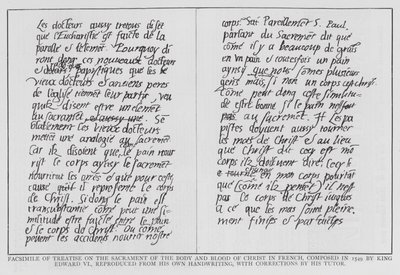 Les docteurs aussy trevous disent
que l'Eucharistie est faicte de la
parolle et l'element. Pourquoy di
ront donc ces nouveaux docteurs
et docteurs papistiques que les
vieux docteurs et anciens peres
de l'eglise tiennent leur partie, veu
qu'ilz disent estre un element
au sacrament
vieux docteurs
mettent une analogie au sacrement
Car ils disoient que le pain nour
rist le corps aynsy le sacrement
nourrit les ames et que pour ceste
cause il represente le corps
de Christ. Si donc le pain est
transubstantié come peut une si
militude estre faicte entre le
et le corps de Christ. Ou come
peuvent les accidents nourir nostre
corps. Saï Pareillement S. Paul,
parlant du Sacrement dit que
come il y a beaucoup de grains
en un pain et toutesfois un pain
aynsy que nous somes plusieurs
gens mais, si non un corps en christ.
Come peut donc ceste similitu-
de estre bonne si le pain ne soit
pas au sacrement. Les pa
pistes doivent aussy tourner
les mots de Christ et au lieu
que Christ dit cecy est mo
corps ilz doivent dire cecy
en mon corps pourtant
que (come ilz pensent) il n'est
pas le corps de Christ jusques
à ce que les mots sont pleine-
ment finies et
FACSIMILE OF TREATISE ON THE SACRAMENT OF THE BODY AND BLOOD OF CHRIST IN FRENCH, COMPOSED IN 1549 BY KING
EDWARD VI., REPRODUCED FROM HIS OWN HANDWRITING, WITH CORRECTIONS BY HIS TUTOR.